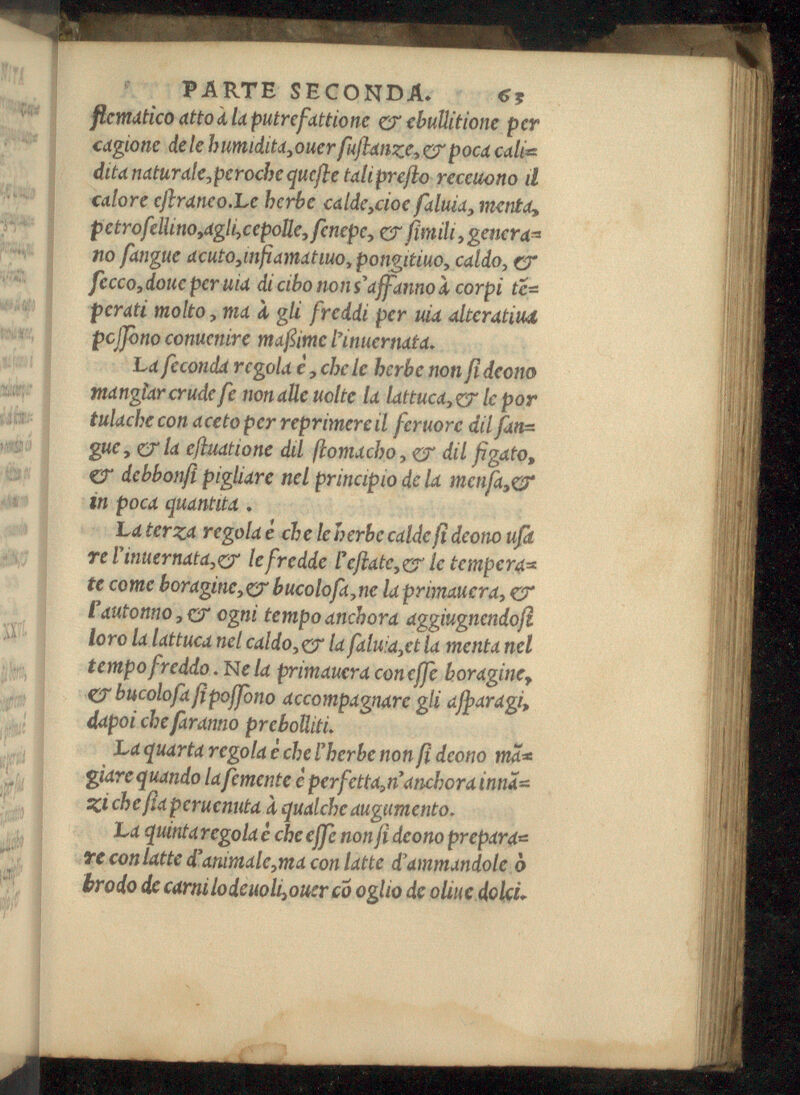 PARTE SECONDA. 65
flematico atto à la putrefattione & ebullitione per
cagione de le humidita, ouer sustanze, & poca cali=
dita naturale, peroche queste tali presto receuono il
calore estraneo. Le herbe calde, cioe saluia, menta,
petrosellino, agli, cepolle, senepe, & simili, genera=
no sangue acuto, infiamatiuo, pongitiuo, caldo, &
secco, doue per uia di cibo non s'affanno à corpi tẽ=
perati molto, ma à gli freddi per uia alteratiua
possono conuenire maßime l'inuernata.
La seconda regola é, che le herbe non si deono
mangiar crude se non alle uolte la lattuca, & le por
tulache con aceto per reprimere il feruore dil san=
gue, & la estuatione dil stomacho, & dil figato,
& debbonsi pigliare nel principio de la mensa, &
in poca quantita.
La terza regola é che le herbe calde si deono usa
re l'inuernata, & le fredde l'estate, & le tempera=
te come boragine, & bucolosa, ne la primauera, &
l'autonno, & ogni tempo anchora aggiugnendosi
loro la lattuca nel caldo, & la saluia, et la menta nel
tempo freddo. Ne la primauera con esse boragine,
& bucolosa si possono accompagnare gli asparagi,
dapoi che saranno prebolliti.
La quarta regola é che l'herbe non si deono mã=
giare quando la semente é perfetta, n'anchora innã=
zi che sia peruenuta à qualche augumento.
La quinta regola é che esse non si deono prepara=
re con latte d'animale, ma con latte d'ammandole ò
brodo de carni lodeuoli, ouer cõ oglio de oliue dolci.